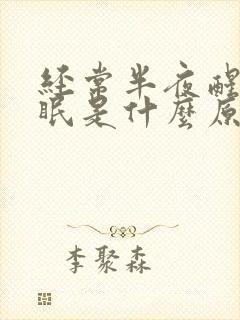 经常半夜醒
眠是什麽原
李聚森